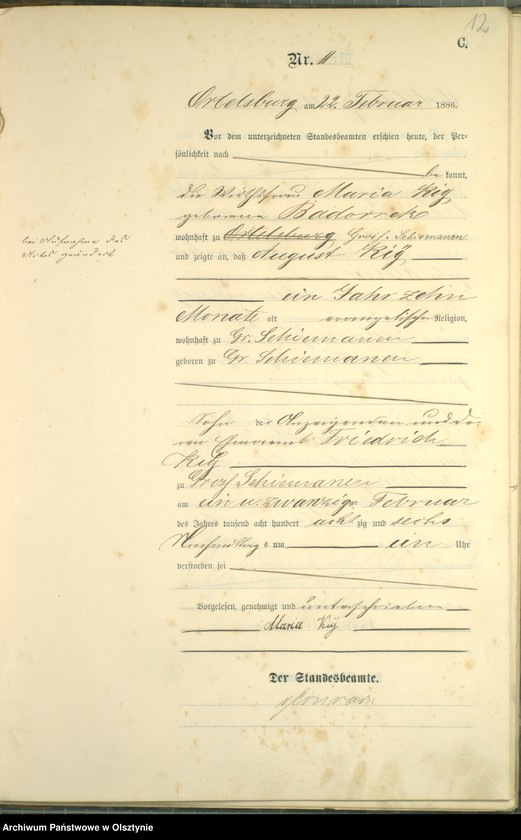 12
C.
Nr. 11
Ortelsburg am 22. Februar 1886.
Vor dem unterzeichneten Standesbeamten erschien heute, der Per-
sönlichkeit nach
be kannt,
die Wirthsfrau Maria Kiy
geborene Badorrek
wohnhaft zu Ortelsburg Groß Schiemanen
und zeigte an, daß August Kiy
ein Jahr zehn
Monate alt evangelischer Religion,
wohnhaft zu Gr. Schiemanen
geboren zu Gr. Schiemanen
Sohn der Anzeigenden und de-
ren Friedrich
Kiy
zu Groß Schiemanen
am ein u. zwanzig Februar
des Jahres tausend acht hundert acht zig und sechs
Nachmittags um ein Uhr
verstorben sei
Vorgelesen, genehmigt und unterschrieben
Maria Kiy
Der Standesbeamte.
bei Aufnahme des
Aktes geändert
Archiwum Państwowe w Olsztynie